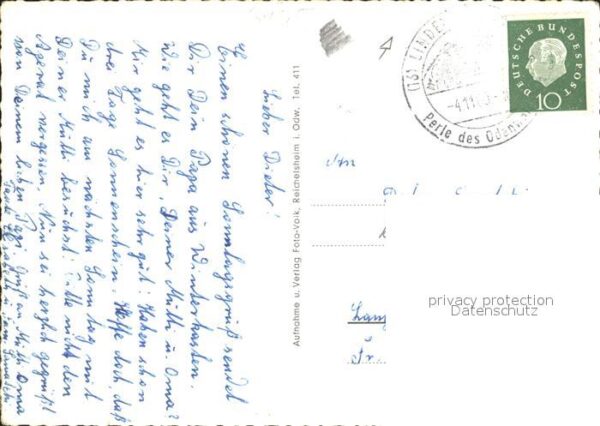 Lieber Dieter!
Einen schönen Sonntagsgruß sendet
Dir Dein Papa aus Winterkasten.
Wie geht es Dir, Deiner Mutti u. Oma?
Mir geht es hier sehr gut! Haben schon
drei Tage Sonnenschein. Hoffe doch, daß
Du mich am nächsten Sonntag mit
Deiner Mutti besuchst! Bitte nicht den
vergessen. Nun sei herzlich gegrüßt
von Deinem lieben Papi. Gruß an Mutti, Oma
Aufnahme u. Verlag Foto-Volk, Reichelsheim i. Odw. Tel. 411
(16) LINDEN
-4.11.
Perle des Odenw
DEUTSCHE BUNDESPOST
10
An
privacy protection
Datenschutz